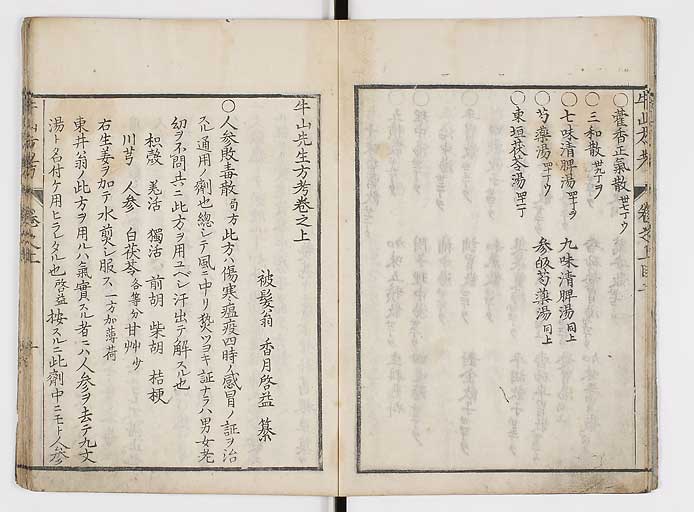 ○藿香正氣散 丗七丁ウ
○三和散 丗九丁ヲ
○七味清脾湯 四十ヲ 九味清脾湯 同上
○芍藥湯 四十丁ウ 參皈芍藥湯 同上
○東垣茯苓湯 四十一丁
牛山先生方考卷之上
被髮翁 香月啓益 纂
○人參敗毒散 局方 此方ハ傷寒瘟疫四時ノ感冒ノ証ヲ治
スル通用ノ劑也總シテ風ニ中リ熱ツヨキ証ナラハ男女老
幼ヲ不問共ニ此方ヲ用ユベシ汗出テ解スル也
枳殼 羌活 獨活 前胡 柴胡 桔梗
川芎 人參 白茯苓 各等分 甘艸 少
右生姜ヲ加テ水煎シ服ス 一方加薄荷
東井翁ノ此方ヲ用ルハ氣實スル者ニハ人參ヲ去テ九丈
湯ト名付ケ用ヒラレタル也 啓益 按スルニ此劑中ニモト人參